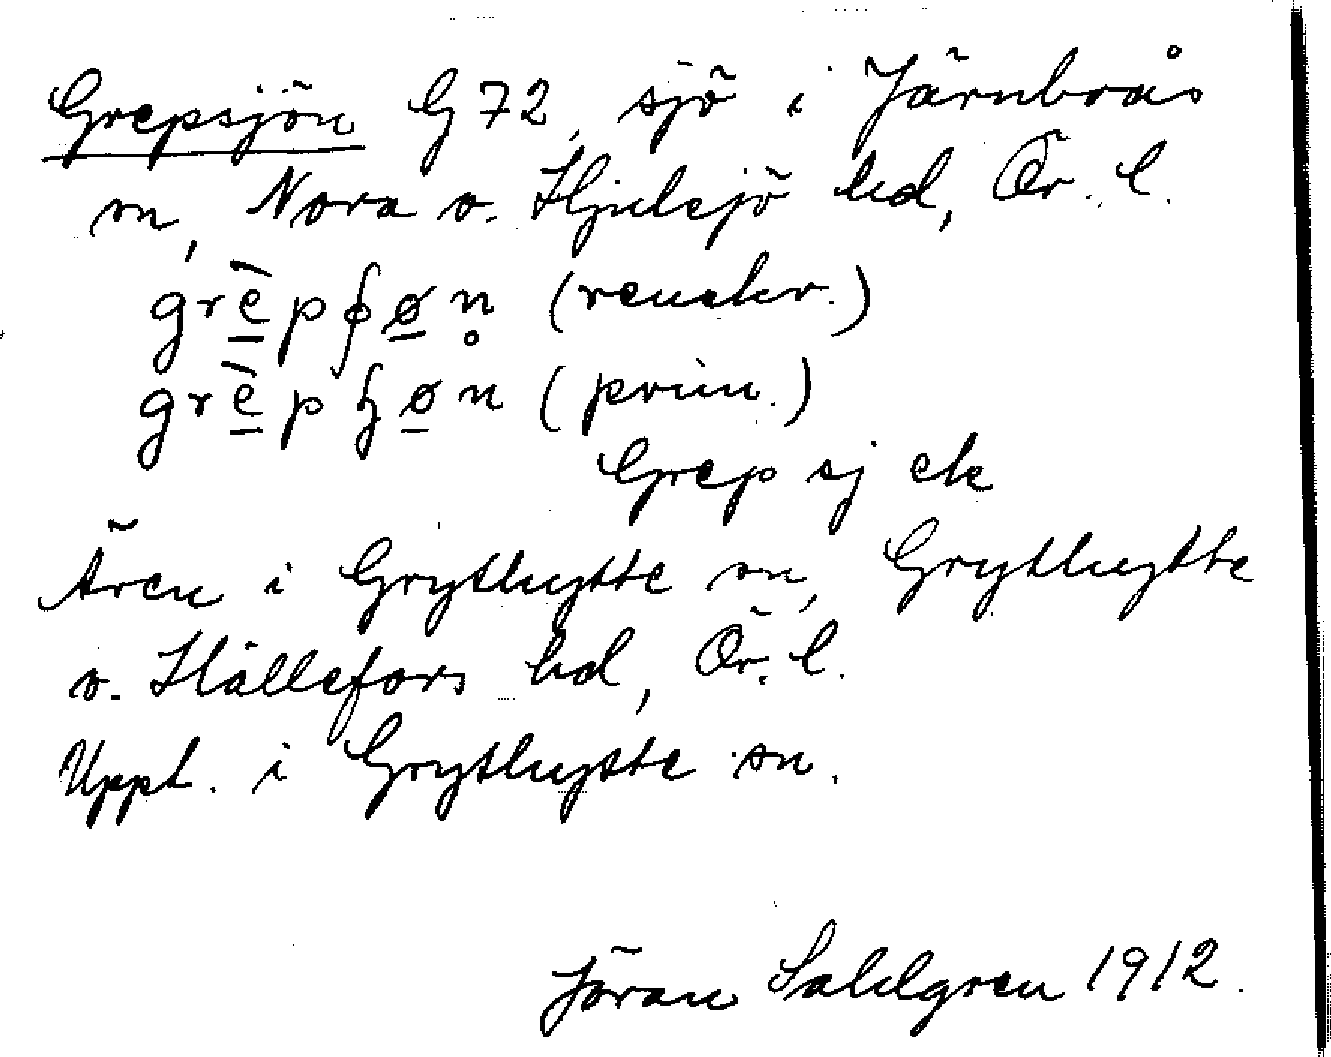 Grepsjön G72, sjö i Järnboås
sn, Nora o. Hjulsjö hd, Ör. l.
grè̱pɸø̱n̥ (renskr.)
grè̱pɧø̱n (prim.)
Grep sj ek
Ären i Grythytte sn, Grythytte
o. Hällefors hd, Ör. l.
Uppt. i Grythytte sn.
Jöran Sahlgren 1912.